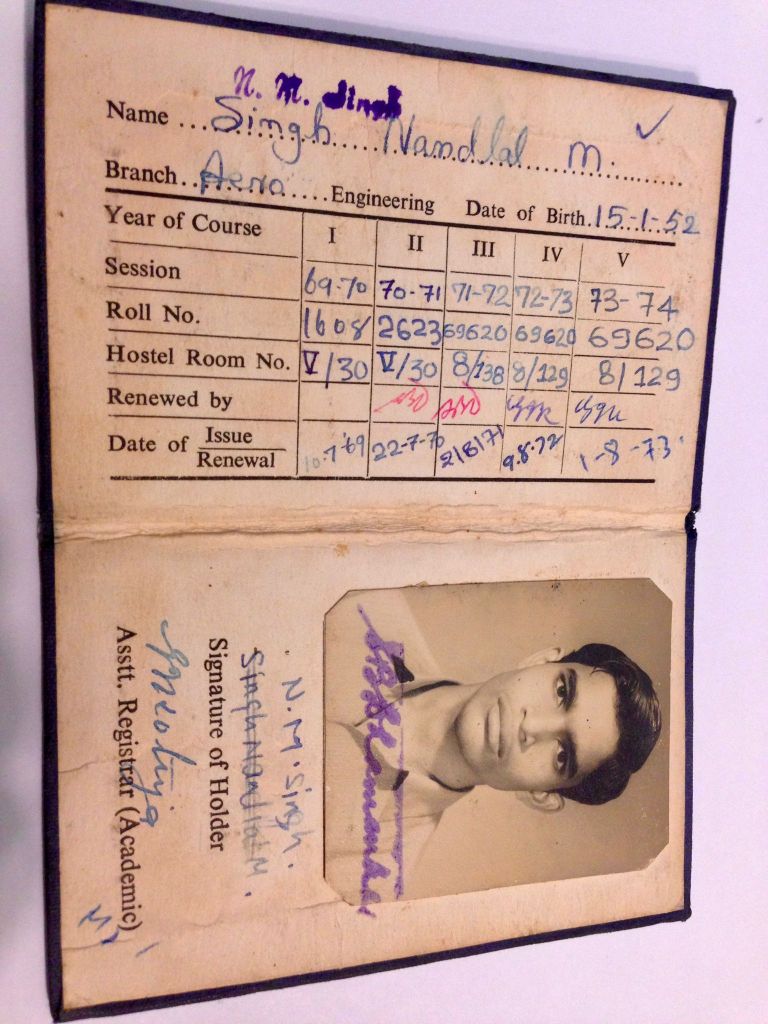 N. M. Singh
Name Singh Nandlal M.
Branch Aero Engineering Date of Birth 15-1-52
Year of Course I II III IV V
Session 69-70 70-71 71-72 72-73 73-74
Roll No. 1608 2623 69620 69620 69620
Hostel Room No. V/30 V/30 8/138 8/129 8/129
Renewed by
Date of Issue/Renewal 10.7.69 22-7-70 2/8/71 9.8.72 1-8-73
N. M. Singh.
Singh Nandlal M.
Signature of Holder
Asstt. Registrar (Academic)